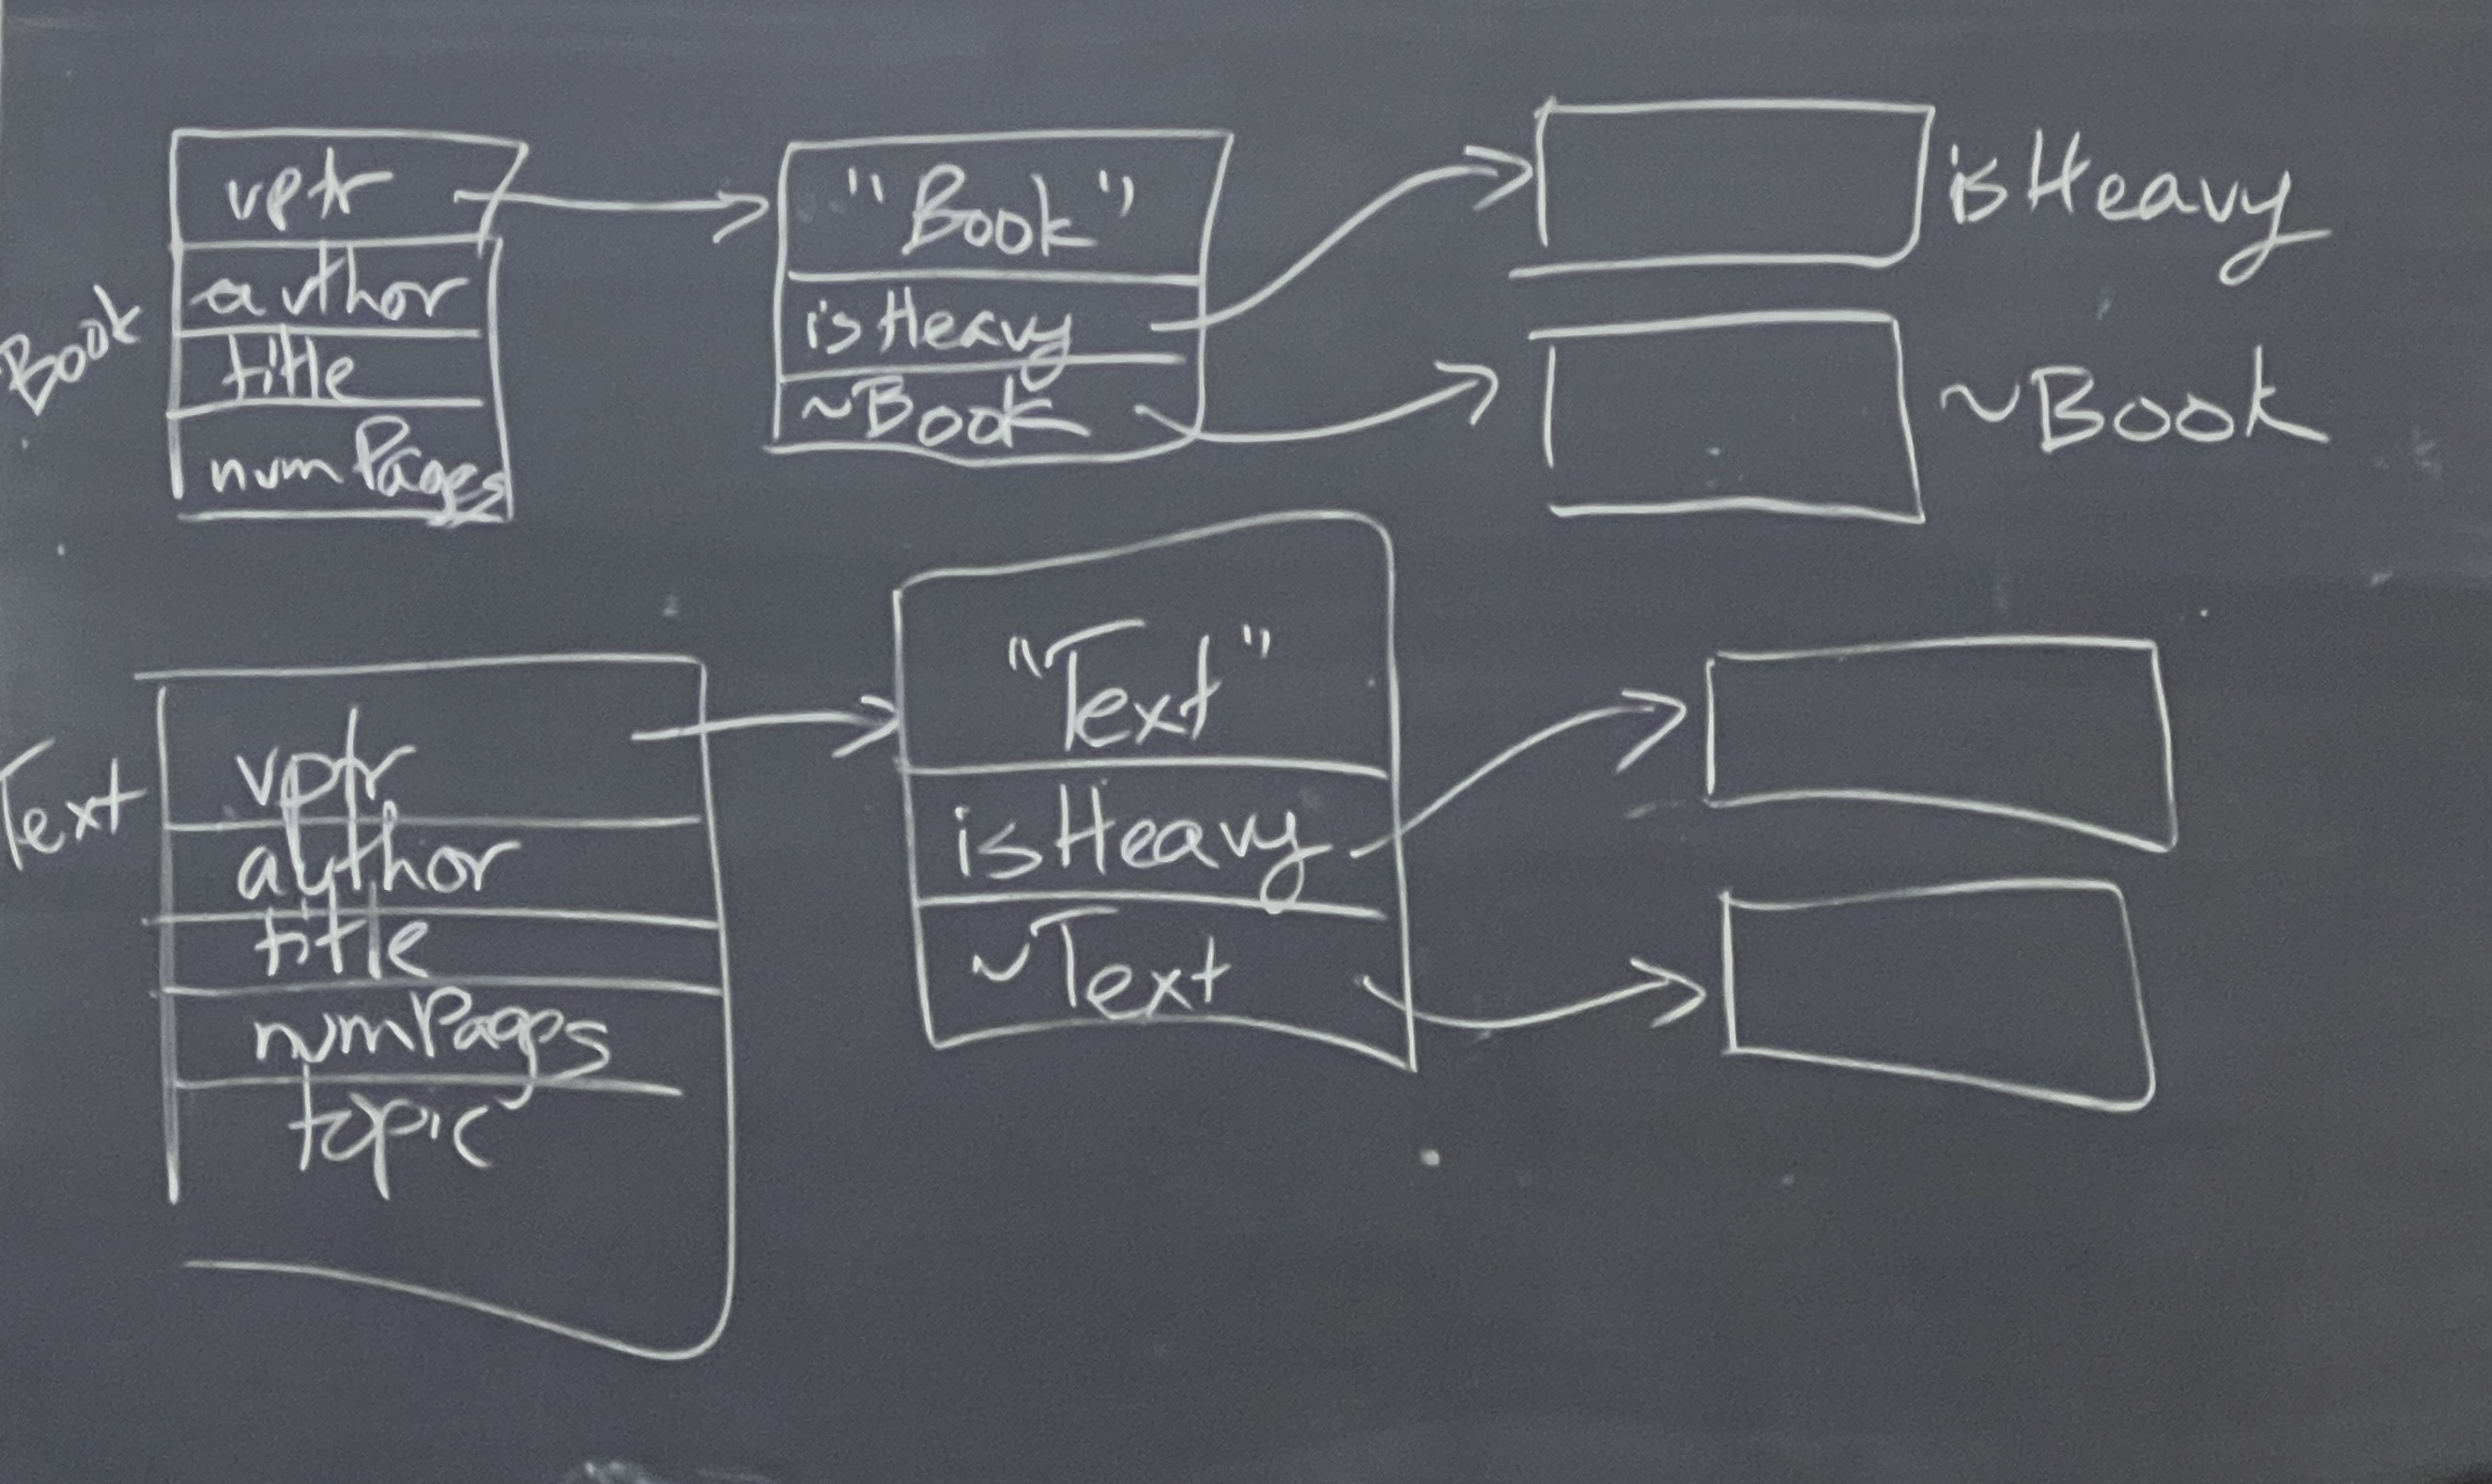 Book
vptr
author
title
numPages
"Book"
isHeavy
~Book
isHeavy
~Book
Text
vptr
author
title
numPages
topic
"Text"
isHeavy
~Text